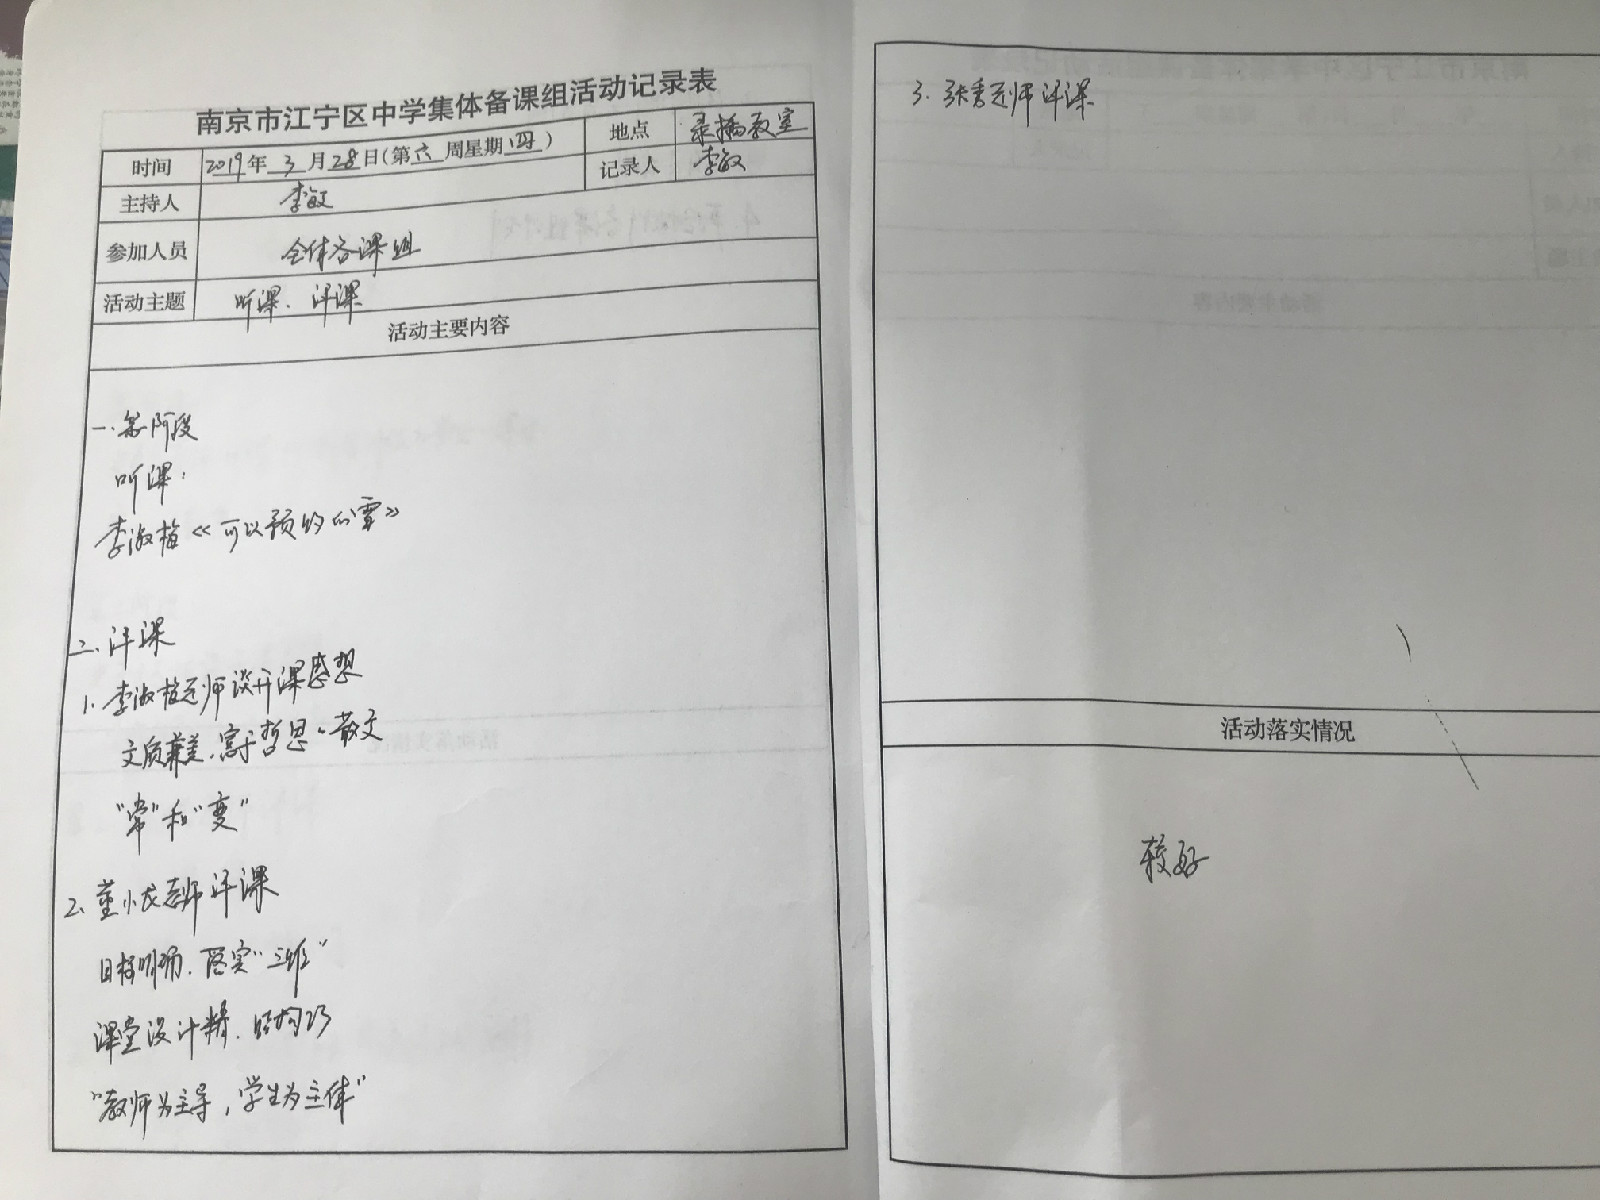 南京市江宁区中学集体备课组活动记录表
时间 2019年 3 月 28 日(第六 周星期 四) 地点 录播教室
主持人 李敏 记录人 李敏
参加人员 全体备课组
活动主题 听课、评课
活动主要内容
一.第一阶段
听课:
李淑植《可以预约的雪》
二、评课
1.李淑植老师谈开课感想
文质兼美.富于哲思的散文
"常"和"变"
2、董小龙老师评课
目标明确.落实"三维"
课堂设计精.结构巧
"教师为主导,学生为主体"
3.张秀老师评课
活动落实情况
较好